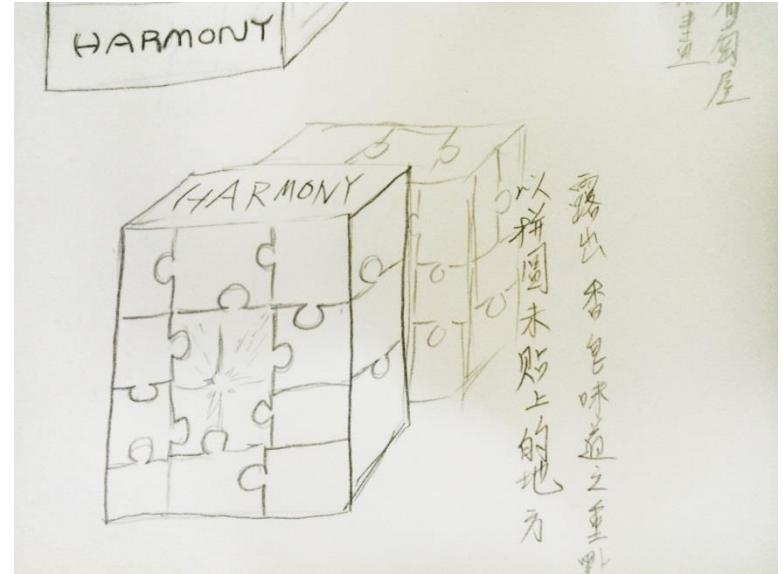 HARMONY
HARMONY
以拼圖未貼上的地方
露出香皂味道之重點